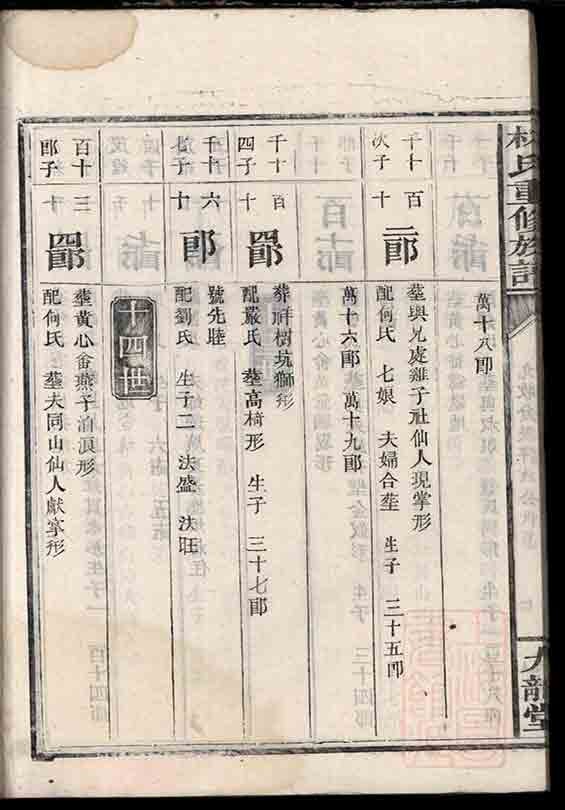 林氏重修族譜
九龍堂
萬十八郎
千十
次子
百二郎
十
塟與兄處雞子社仙人現掌形
配何氏 七娘 夫婦合塟 生子 三十五郎
萬十六郎 萬十九郎
千十
四子
百四郎
十
葬祥樹坑獅形
配嚴氏 塟高椅形 生子 三十七郎
千十
六郎
十
號先睦
配劉氏 生子二 法盛 法旺
十四世
百十
郎子
三四郎
十
塟黃心畬燕子泊泿形
配何氏 塟夫同山仙人獻掌形